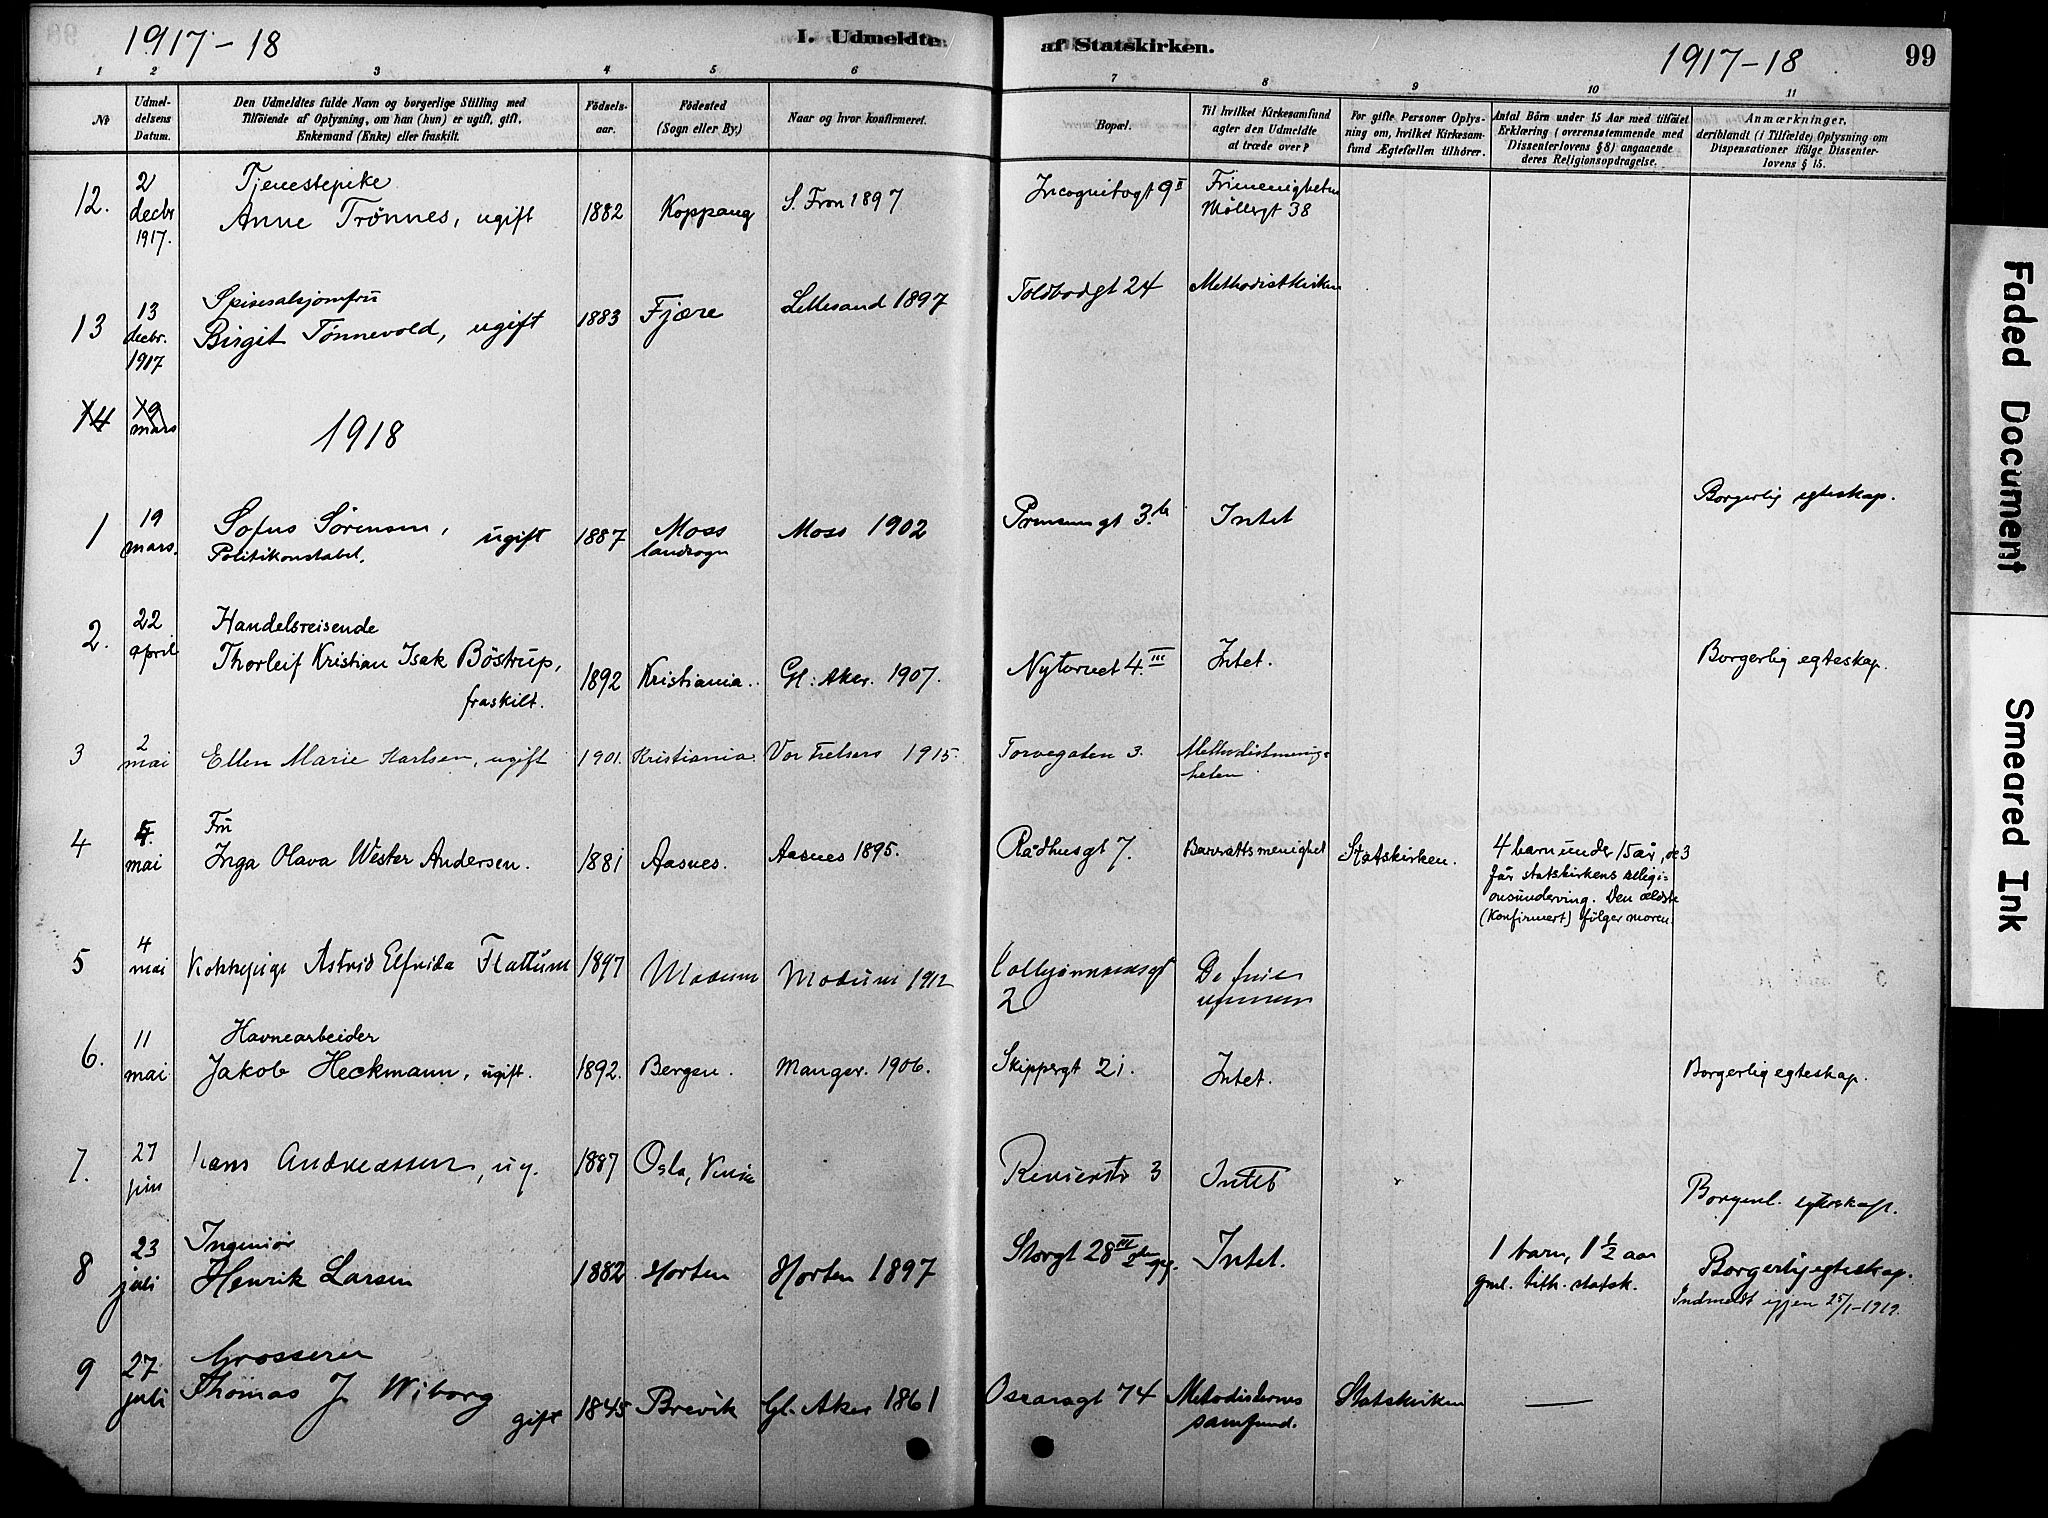 1917-18
I. Udmeldte af Statskirken.
1917-18
99
1 2 3 4 5 6 7 8 9 10 11
No
Udmel-
delsens
Datum.
Den Udmeldtes fulde Navn og borgerlige Stilling med
Tilföiende af Oplysning, om han (hun) er ugift, gift,
Enkemand (Enke) eller fraskilt.
Födsels-
aar.
Födested
(Sogn eller By.)
Naar og hvor konfirmeret.
Bopæl.
Til hvilket Kirkesamfund
agter den Udmeldte
at træde over?
For gifte Personer Oplys-
ning om, hvilket Kirkesam-
fund Ægtefællen tilhörer.
Antal Börn under 15 Aar med tilföiet
Erklæring (overensstemmende med
Dissenterlovens § 8) angaaende
deres Religionsopdragelse.
Anmærkninger,
deriblandt (i Tilfælde) Oplysning om
Dispensationer ifölge Dissenter-
lovens § 15.
12. 2 decbr 1917.
Tjenestepike
Anne Trönnes, ugift 1882 Koppang S. Fron 1897
Incognitogt 9 II
Frimenigheten
Möllergt 38
13 13 decbr. 1917
Spisesalsjomfru
Birgit Tönnevold, ugift 1883 Fjære Lillesand 1897
Toldbodgt 24 Methodistkirken
14 19 mars
1918
1 19 mars.
Sofus Sörensen, ugift
Politikonstabel.
1887 Moss
landsogn
Moss 1902
Prinsensgt 3.b Intet
Borgerlig egteskap.
2. 22 april
Handelsreisende
Thorleif Kristian Isak Böstrup,
fraskilt.
1892 Kristiania. Gl. Aker. 1907.
Nytorvet 4. III Intet. Borgerlig egteskap.
3 2 mai
Ellen Marie Karlsen, ugift 1901. Kristiania Vor Frelsers 1915.
Torvegaten 3. Methodistmenig-
heten
4 mai
Fru
Inga Olava Wester Andersen. 1881 Aasnes. Aasnes 1895.
Rådhusgt 7. Barrattsmenighet Statskirken.
4 barn under 15 år, de 3
får statskirkens religi-
onsunderving. Den ældste
(konfirmert) fölger moren.
5 4 mai
Kokkepige Astrid Elfrida Flattum 1897 Modum Modum 1912
2
De frie
venner
6. 11 mai
Havnearbeider
Jakob Heckmann, ugift. 1892. Bergen. Manger. 1906.
Skippergt 21. Intet. Borgerlig egteskap.
7. 27 jun
Hans Andreassen, ug. 1887 Oslo,
Revierstr 3 Intet
Borgerl. egteskap.
8 23 juli
Ingeniör
Henrik Larsen 1882 Horten Horten 1897
Storgt 28 III Intet.
1 barn, 1 1/2 aar
gml. tilh. statsk.
Borgerlig egteskap.
Indmeldt igjen 25/1-1919.
9 27 juli
Grosserer
Thomas J. Wiborg
gift 1845 Brevik Gl. Aker 1861
Oscarsgt 74 Metodisternes
samfund.
Statskirken —
Faded Document
Smeared Ink